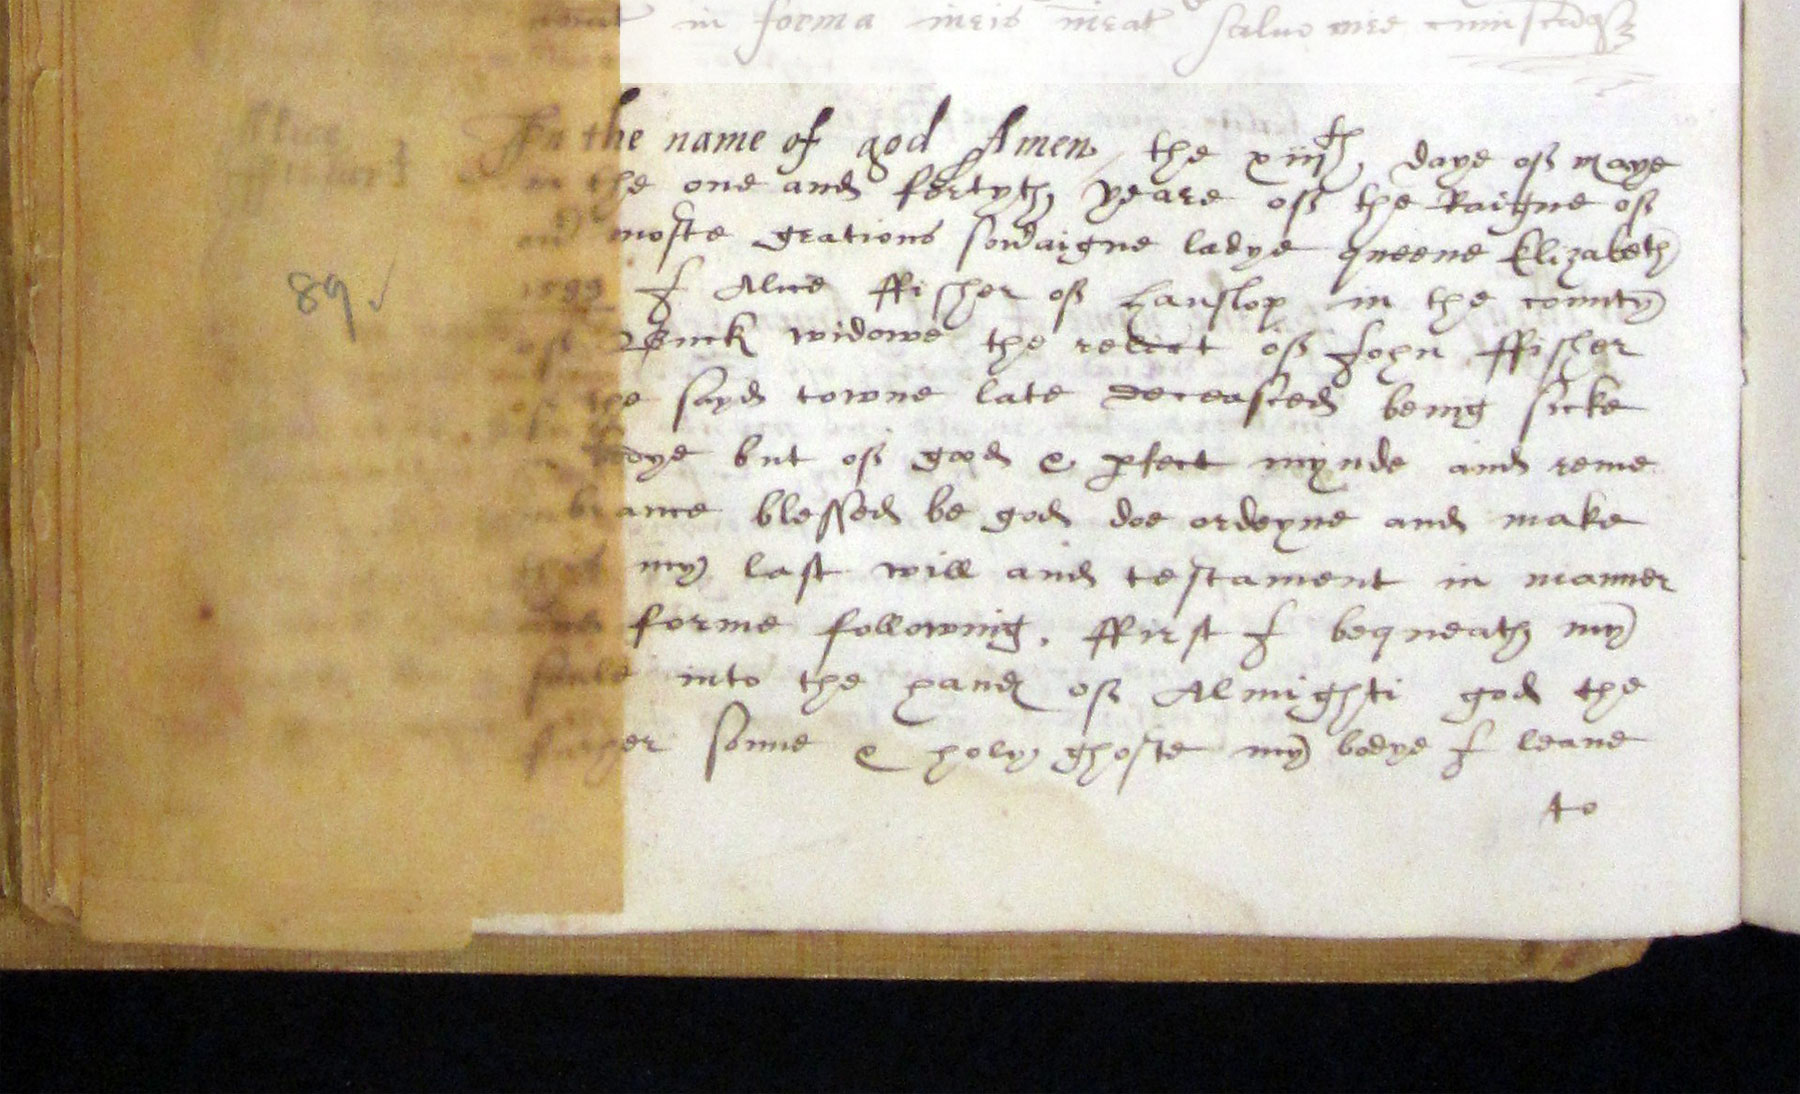 in forma iuris iurat salvo iure cuiuscu(n)q(ue)
Alice
ffisher
In the name of god Amen, the xiiijth daye of maye
in the one and fortyth yeare of the Raigne of
our moste gratious sov'aigne ladye queene Elizabeth
1599 I Alice ffisher of Hanslop in the county
of Buck widowe the relict of John ffisher
of the sayd towne late deceassed being sicke
bodye but of good & p'fect mynde and reme
mbrance blessed be god doe ordeyne and make
this my last will and testament in manner
and forme following, ffirst I bequeath my
soule into the hand of Almighti god the
father sonne & holy ghoste my bodye I leave
to
89